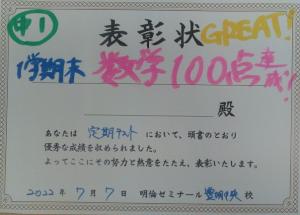 中1
表彰状
GREAT!
1学期末
数学100点
達成!
殿
あなたは 定期テスト において、頭書のとおり
優秀な成績を収められました。
よってここにその努力と熱意をたたえ、表彰いたします。
2022年 7月 7日 明倫ゼミナール 豊明中央 校